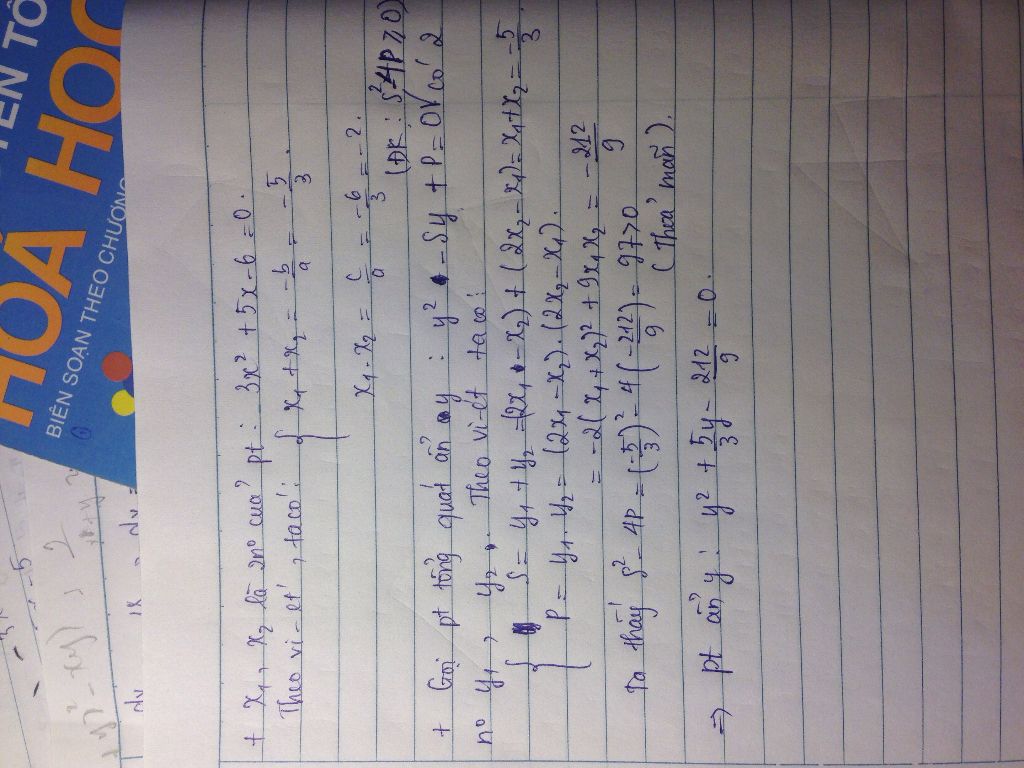 YẾN TÔ
HOÁ HỌC
BIÊN SOẠN THEO CHƯƠNG
+ x₁, x₂ là 2n⁰ của pt: 3x² + 5x - 6 = 0.
Theo vi-ét, ta có: { x₁ + x₂ = -b/a = -5/3.
x₁ . x₂ = c/a = -6/3 = -2.
(ĐK: S² - 4P ≥ 0)
+ Gọi pt tổng quát ẩn y: y² - Sy + P = 0 có 2
n⁰ y₁, y₂. Theo vi-ét ta có:
{ S = y₁ + y₂ = (2x₁ - x₂) + (2x₂ - x₁) = x₁ + x₂ = -5/3.
P = y₁ . y₂ = (2x₁ - x₂) . (2x₂ - x₁).
= -2(x₁ + x₂)² + 9x₁x₂ = -212/9
Ta thấy S² - 4P = (-5/3)² - 4(-212/9) = 97 > 0
(Thoả mãn).
=> pt ẩn y: y² + 5/3 y - 212/9 = 0.